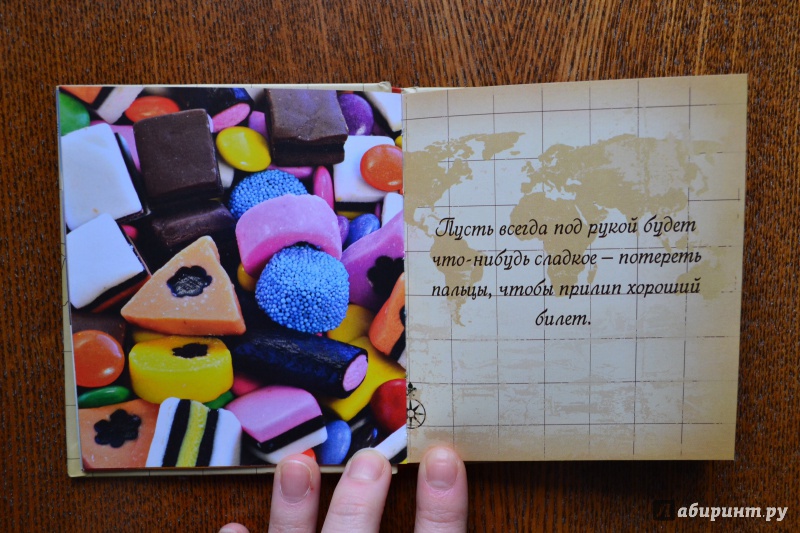 Пусть всегда под рукой будет
что-нибудь сладкое – потереть
пальцы, чтобы прилип хороший
билет.
Лабиринт.ру